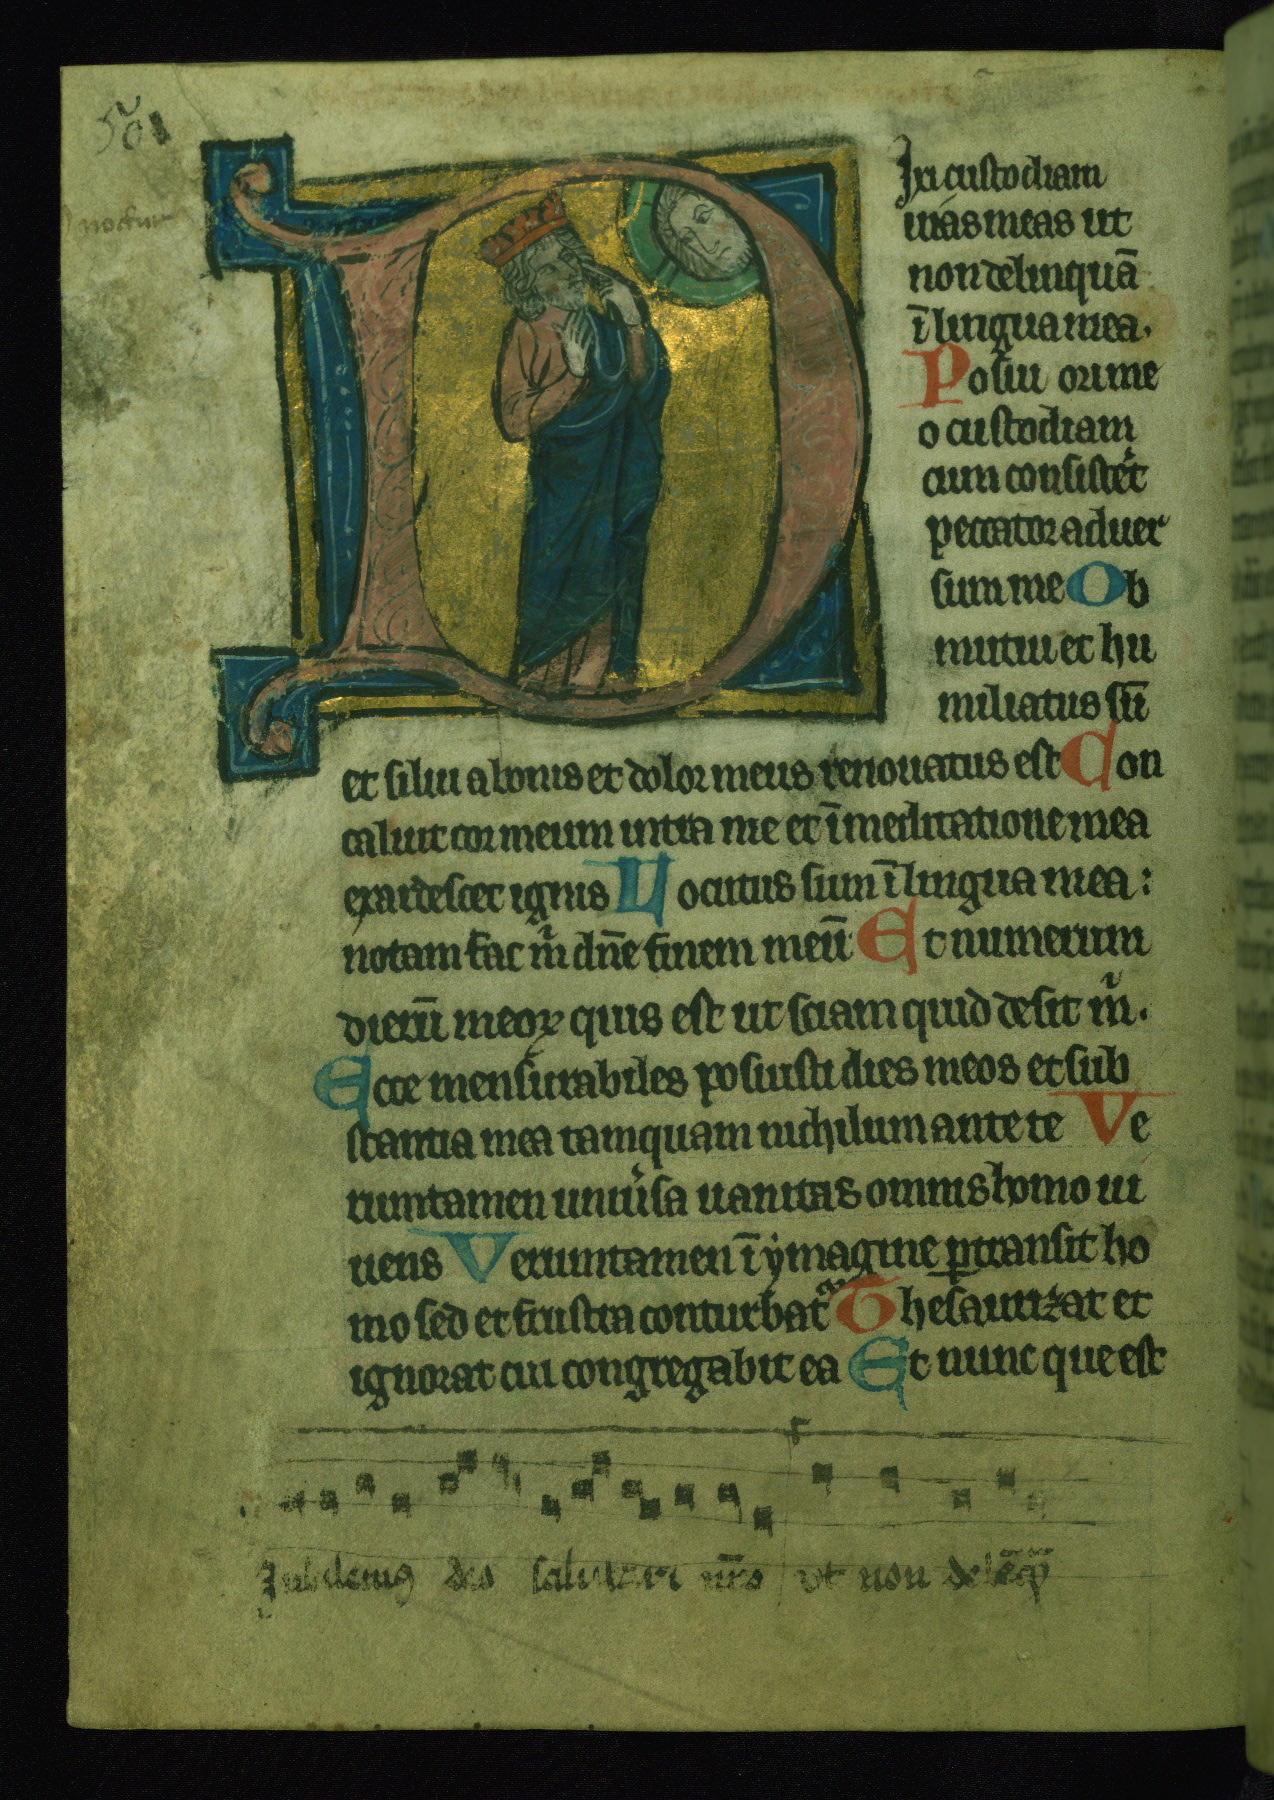 D
ixi custodiam
uias meas ut
non delinquā
ī lingua mea.
Posui ori me
o custodiam
cum consistet̉
peccator aduer
sum me Ob
mutui et hu
miliatus sū
et silui a bonis et dolor meus renouatus est Con
caluit cor meum intra me et ī meditatione mea
exardescet ignis Locutus sum ī lingua mea:
notam fac m̉ dn̄e finem meū Et numerum
dierū meoꝝ quis est ut sciam quid desit m̉.
Ecce mensurabiles posuisti dies meos et sub
stantia mea tamquam nichilum ante te Ve
runtamen uniu̓sa uanitas omnis homo ui
uens Veruntamen ī ymagine ꝑtransit ho
mo sed et frustra conturbat᷑ Thesaurizat et
ignorat cui congregabit ea Et nunc que est
Jubilemꝰ deo salutari nr̄o ut non